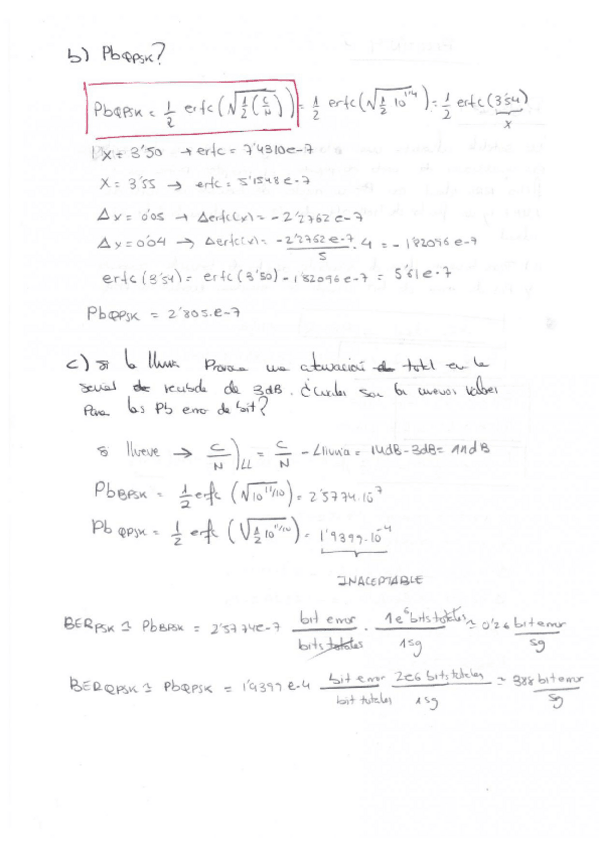 b) PbQPSK?
PbQPSK = 1/2 erfc(√(1/2 (C/N))) = 1/2 erfc(√(1/2 10^1'4)) = 1/2 erfc(3'54)
x
X = 3'50 → erfc = 7'4310e-7
X = 3'55 → erfc = 5'1548e-7
Δx = 0'05 → Δerfc(x) = -2'2762e-7
Δy = 0'04 → Δerfc(x) = -2'2762e-7/5 · 4 = -1'82096e-7
erfc(3'54) = erfc(3'50) - 1'82096e-7 = 5'61e-7
PbQPSK = 2'805.e-7
c) si la lluvia Provoca una atenuación de total en la
señal de recibida de 3dB. ¿Cuáles son los nuevos valores
Para las Pb error de bit?
si llueve → C/N)LL = C/N - Llluvia = 14dB - 3dB = 11dB
PbBPSK = 1/2 erfc(√10^11/10) = 2'5774·10^7
PbQPSK = 1/2 erfc(√(1/2 10^11/10)) = 1'9399·10^-4
INACEPTABLE
BERPSK ≃ PbBPSK = 2'5774e-7 bit error/bits totales · 1e6 bits totales/1sg ≃ 0'26 bit error/sg
BERQPSK ≃ PbQPSK = 1'9399e-4 bit error/bit totales 2e6 bits totales/1sg ≃ 388 bit error/sg